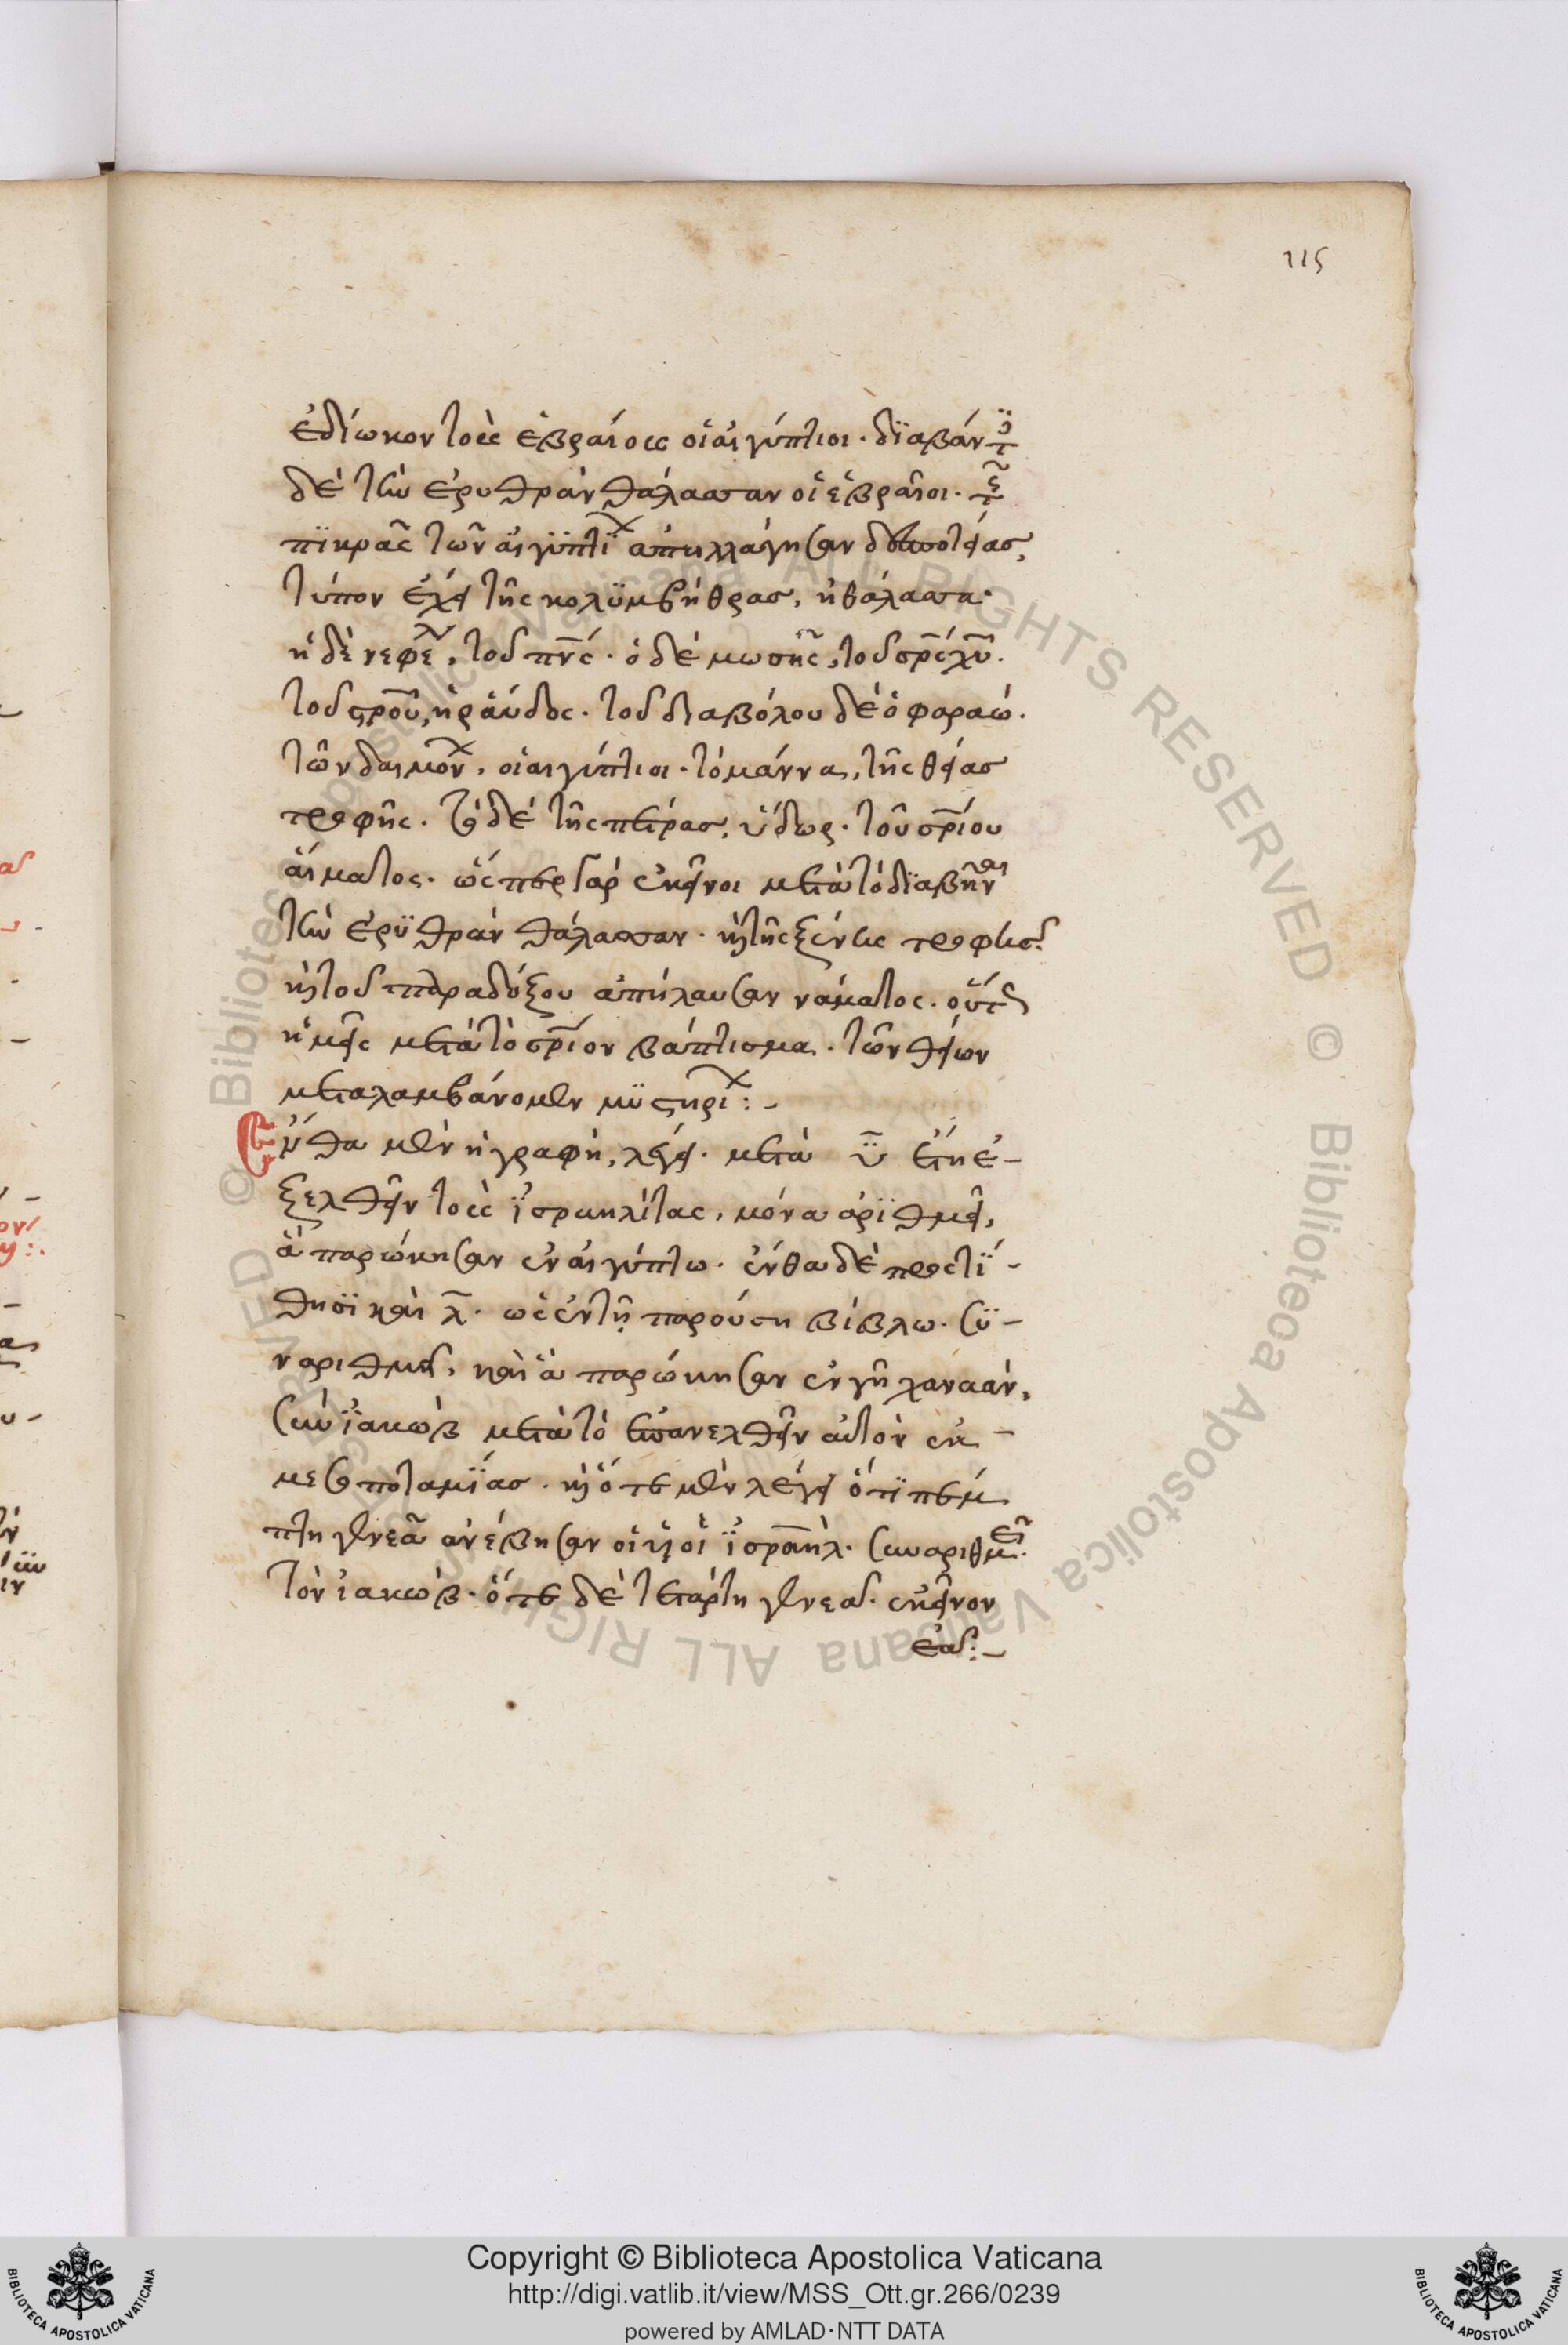 115
ἐδίωκον τοὺς ἑβραίους οἱ αἰγύπτιοι· διαβάντ
δὲ τὴν ἐρυθρὰν θάλασσαν οἱ ἑβραῖοι· τ
πϊκρᾶς τῶν αἰγϋπτί ἀπηλλάγησαν δεσποτείας,
τύπον ἔχει τῆς κολϋμβήθρας, ἡ θάλασσα·
ἡ δὲ νεφέ, τοῦ πν̅ς· ὁ δὲ μωσῆς, τοῦ σρ̅ς χυ̅.
τοῦ σρου̅, ἡ ράύδος· τοῦ διαβόλου δὲ ὁ φαραώ.
τῶν δαιμόν, οἱ αἰγύπτιοι· τὸ μάννα, τῆς θείας
τροφῆς· τὸ δὲ τῆς πέτρας, ὕδωρ· τοῦ σρ̅ίου
αἵματος· ὥσπερ γὰρ ἐκεῖνοι μετὰ τὸ διαβῆναι
τὴν ἐρϋθρὰν θάλασσαν· καὶ τῆς ξένης τροφῆς
καὶ τοῦ παραδόξου ἀπήλαυσαν νάματος· οὕτ
ἡμεῖς μετὰ τὸ σρ̅ιον βάπτισμα· τῶν θείων
μεταλαμβάνομεν μϋστηρί:-
Ἐνθα μὲν ἡ γραφὴ, λέγει· μετὰ υ̅ ἔτη ἐ-
ξελθεῖν τοὺς ἰσραηλίτας, μόνα ἀρϊθμεῖ,
ἃ παρώκησαν ἐν αἰγύπτω· ἔνθα δὲ προστί-
θησϊ καὶ λ̅· ὡς ἐν τῇ παρούση βίβλω· σϋ-
ναριθμεῖ, καὶ ἃ παρώκησαν ἐν γῆ χαναάν,
σὺν ἰακὼβ μετὰ τὸ ἐπανελθεῖν αὐτὸν ἐκ-
μεσοποταμίας· καὶ ὅτε μὲν λέγει ὅτϊ πέμ
πτη γενεᾶ ἀνέβησαν οἱ υἱοὶ ἰσραήλ· συναριθμεῖ
τὸν ἰακὼβ· ὅτε δὲ τετάρτη γενεᾶ· ἐκεῖνον
ἐᾶ:-
Copyright © Biblioteca Apostolica Vaticana
http://digi.vatlib.it/view/MSS_Ott.gr.266/0239
powered by AMLAD·NTT DATA